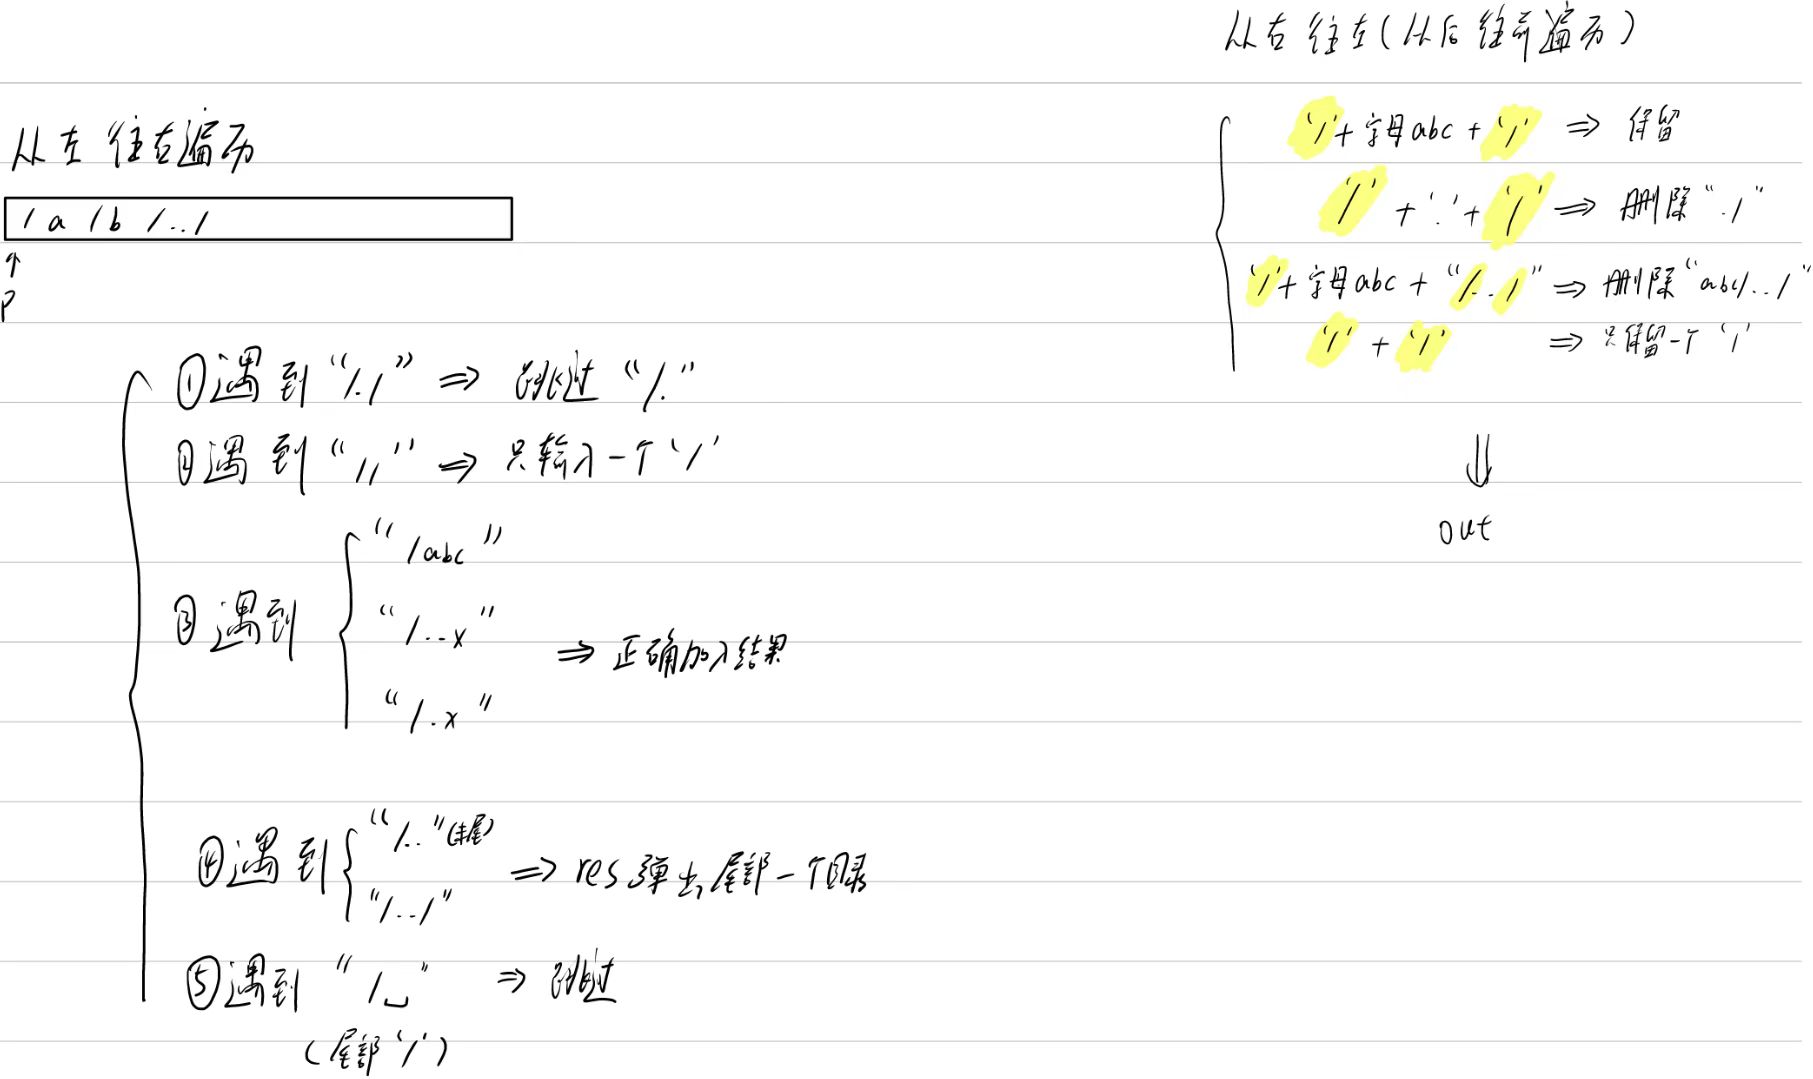 从右往左(从后往前遍历)
'/'+字母abc+'/' ⇒ 保留
'/'+'.'+'/' ⇒ 删除"./"
'/'+字母abc+"/../" ⇒ 删除"abc/../"
'/'+'/' ⇒ 只保留一个'/'
⇓
out
从左往右遍历
/a/b/../
↑
P
①遇到"/./" ⇒ 跳过"/."
②遇到"//" ⇒ 只输入一个'/'
③遇到
"/abc"
"/..x"
"/.x"
⇒ 正确加入结果
④遇到
"/.."(末尾)
"/../"
⇒ res弹出尾部一个目录
⑤遇到"/␣" ⇒ 跳过
(尾部'/')